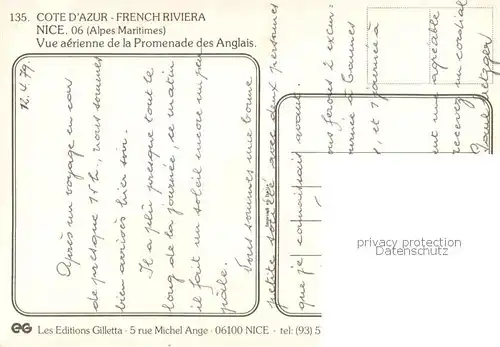 135. COTE D'AZUR - FRENCH RIVIERA
NICE. 06 (Alpes Maritimes)
Vue aérienne de la Promenade des Anglais.
12.4.79.
Après un voyage en car
de presque 15 h., nous sommes
bien arrivés hier soir.
Il a plu presque tout le
long de la journée, ce matin
il fait un soleil encore un peu
pâle.
Nous sommes une bonne
petite société avec deux personnes
que je connaissais avant.
ous ferons 2 excur-
à Cannes
et 1 journée à
ent un agréable
recevez un cordial
Paul
privacy protection
Datenschutz
EG Les Editions Gilletta - 5 rue Michel Ange - 06100 NICE - tel: (93) 5